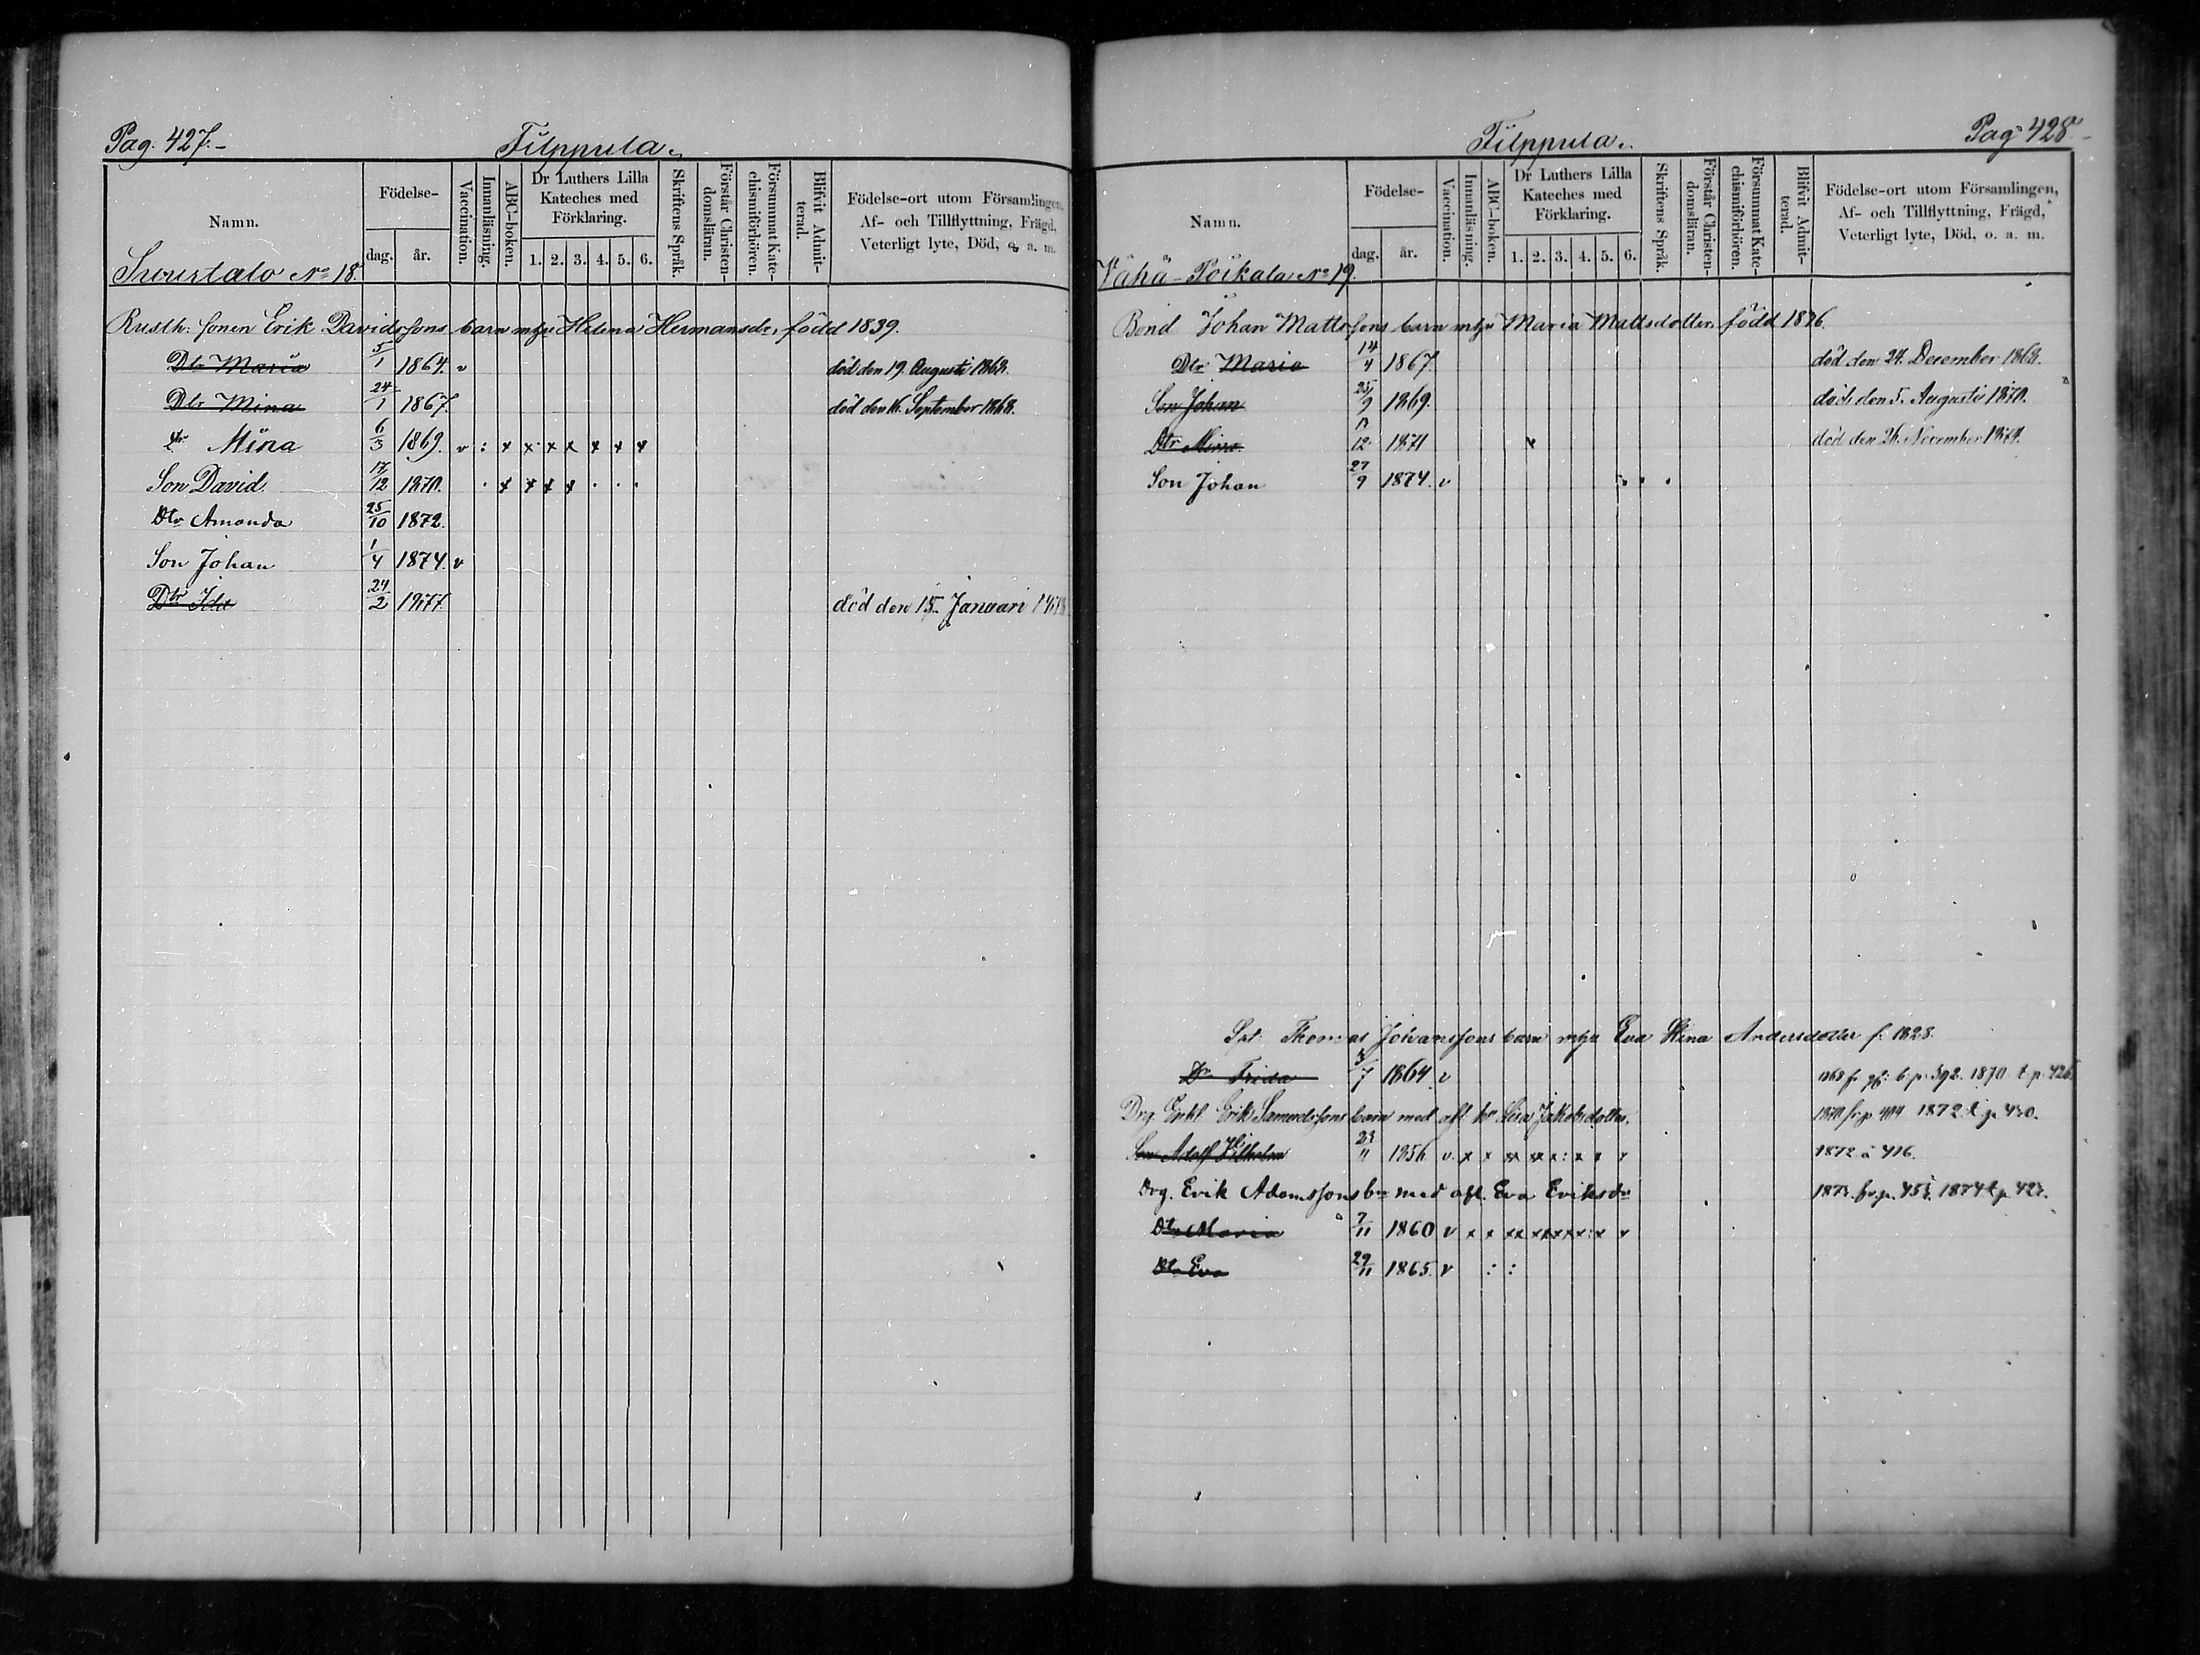 Pag. 427.
Filppula.
Namn.
Födelse-
dag.
år.
Vaccination.
Innanläsning.
ABC-boken.
Dr Luthers Lilla Kateches med Förklaring.
1. 2. 3. 4. 5. 6.
Skriftens Språk.
Förstår Christendomsläran.
Försummat Katechismiförhören.
Blifvit Admitterad.
Födelse-ort utom Församlingen,
Af- och Tillflyttning, Frägd,
Veterligt lyte, Död, o. a. m.
No 18.
Rusth. sonen Erik Davidssons barn m hu Helena Hermansdr, född 1839.
Dtr Maria 5/1 1864. v död den 19. Augusti 1868.
Dtr Mina 24/1 1867. död den 16. September 1868.
dr Mina 6/3 1869. v : x x x x x x x
Son David. 17/12 1870. . x x x x . . .
Dtr Amanda 25/10 1872.
Son Johan 1/4 1874. v
Dtr Ida 24/2 1877. död den 15. Januari 1878.
Pag. 428.
Filppula.
Namn.
Födelse-
dag.
år.
Vaccination.
Innanläsning.
ABC-boken.
Dr Luthers Lilla Kateches med Förklaring.
1. 2. 3. 4. 5. 6.
Skriftens Språk.
Förstår Christendomsläran.
Försummat Katechismiförhören.
Blifvit Admitterad.
Födelse-ort utom Församlingen,
Af- och Tillflyttning, Frägd,
Veterligt lyte, Död, o. a. m.
Vähä-Poikala No 19.
Bond Johan Mattssons barn m hu Maria Mattsdotter, född
Dtr Maria 14/4 1867. död den 24. December 1868.
Son Johan 25/9 1869. död den 5. Augusti 1870.
Dtr Mina 12 1871 x död den 26. November
Son Johan 27/9 1874. v
Thomas Johanssons barn m hu Eva Stina Andersdotter f. 1828.
Dr Frida 7 1864. v 1870 t. p. 426.
Drg. Erik Samuelssons barn med afl. hu Jakobsdotter, 1872 t. p. 430.
Son Adolf Vilhelm 23/11 1856 v. x x xx xx x : x x v 1872 å 416.
Drg. Erik Adamssons bn med afl. Eva Eriksdr 1874 t. p. 423.
Dtr Maria 7/11 1860 v x x
Dtr Eva 29/11 1865. v : :